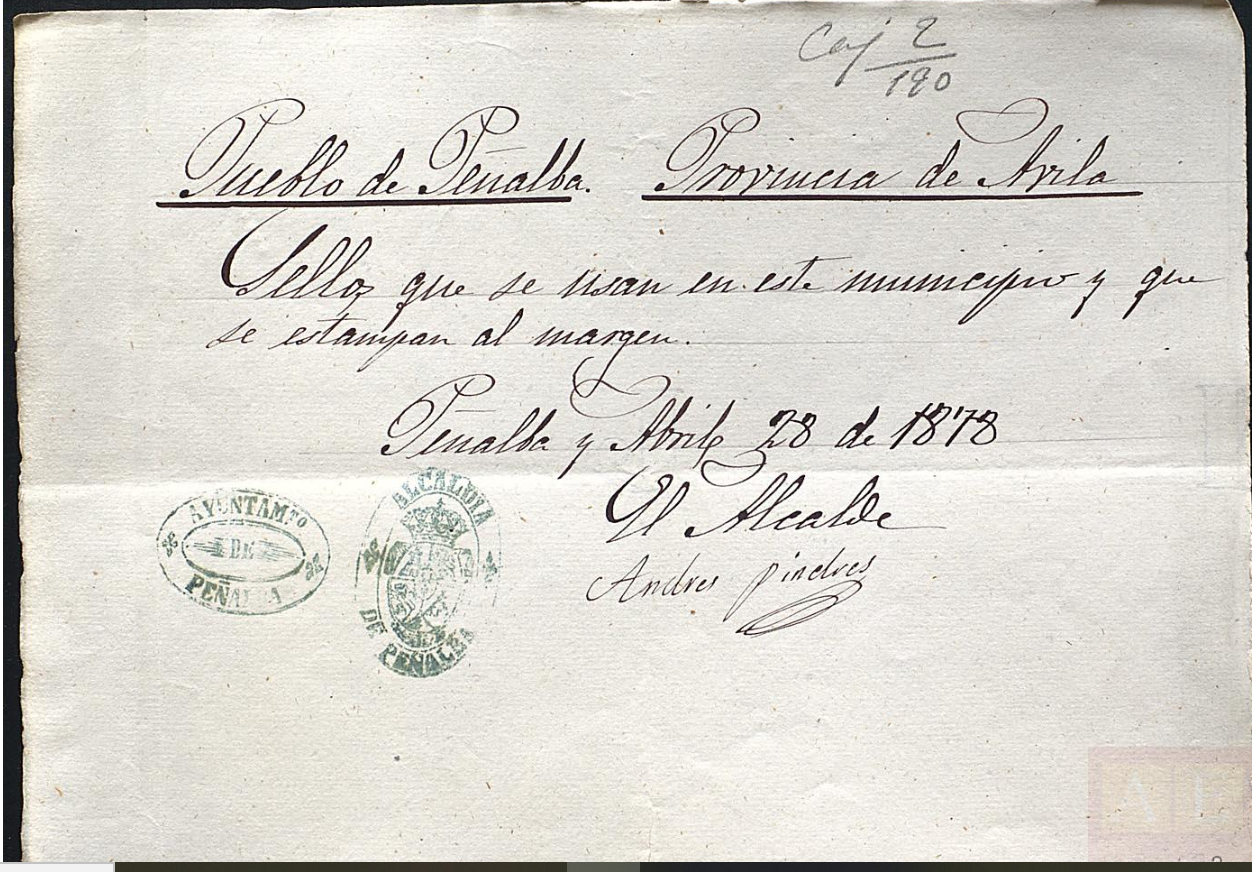 Caj 2
190
Pueblo de Peñalba. Provincia de Avila
Sellos que se usan en este municipio y que
se estampan al margen.
Peñalba y Abril 28 de 1878
El Alcalde
Andres pindres
AYUNTAMTO
DE
PEÑALBA
ALCALDIA
DE PEÑALBA